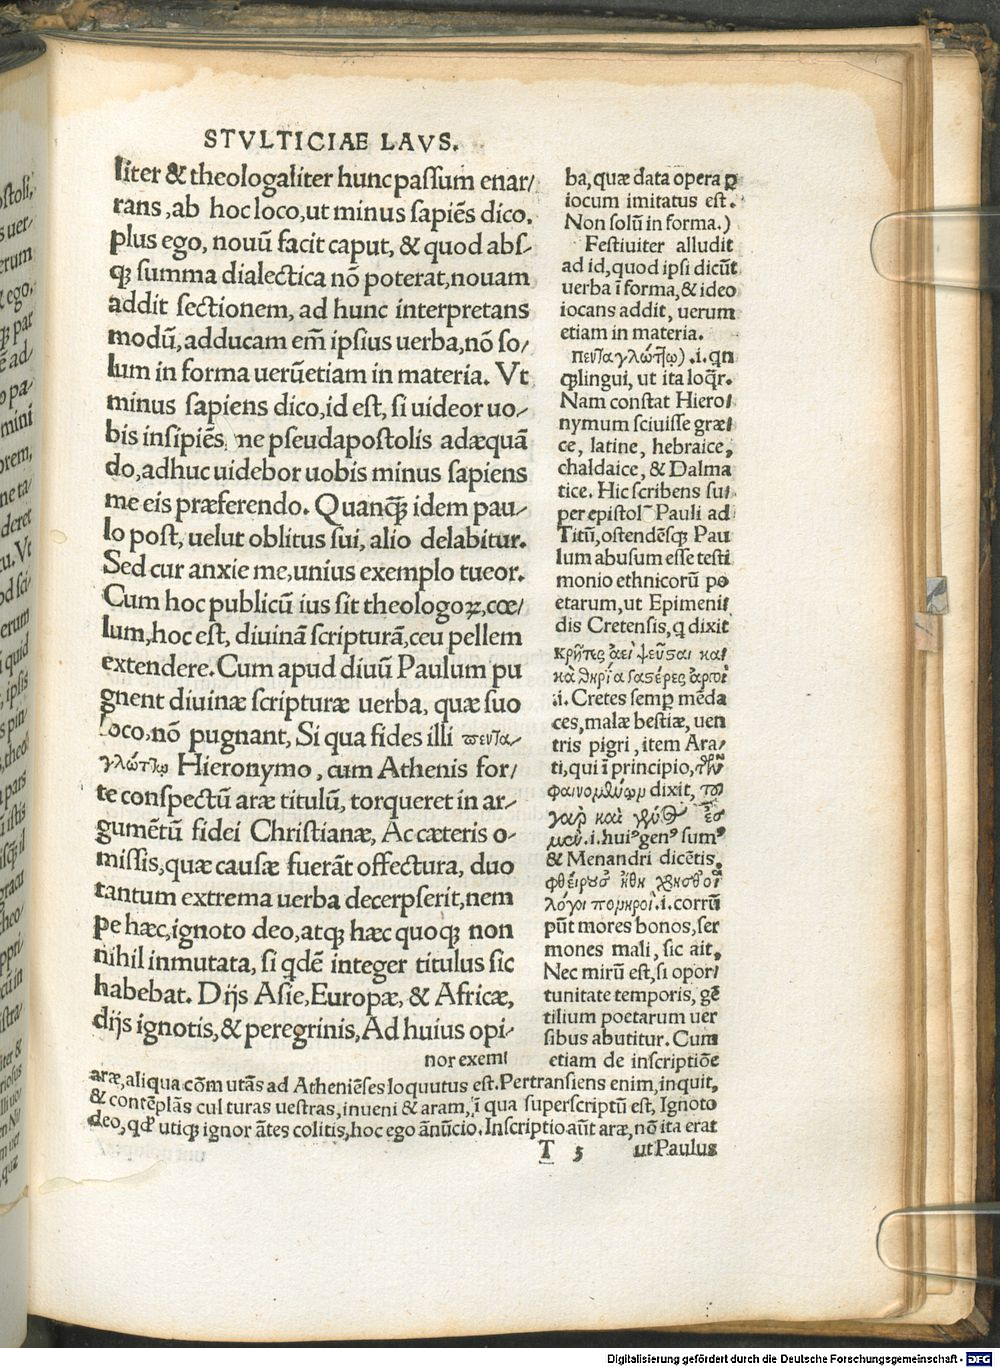 STVLTICIAE LAVS.
liter & theologaliter hunc passum enar/
rans, ab hoc loco, ut minus sapiẽs dico.
plus ego, nouũ facit caput, & quod abs⸗
qꝫ summa dialectica nõ poterat, nouam
addit sectionem, ad hunc interpretans
modũ, adducam em̃ ipsius uerba, nõ so⸗
lum in forma uerũetiam in materia. Vt
minus sapiens dico, id est, si uideor uo⸗
bis insipiẽs, ne pseudapostolis adæquã
do, adhuc uidebor uobis minus sapiens
me eis præferendo. Quanqꝫ̃ idem pau⸗
lo post, uelut oblitus sui, alio delabitur.
Sed cur anxie me, unius exemplo tueor.
Cum hoc publicũ ius sit theologoꝝ, cœ/
lum, hoc est, diuinã scripturã, ceu pellem
extendere. Cum apud diuũ Paulum pu
gnent diuinæ scripturæ uerba, quæ suo
loco, nõ pugnant, Si qua fides illi πεντα⸗
γλώτῳ Hieronymo, cum Athenis for/
te conspectũ aræ titulũ, torqueret in ar⸗
gumẽtũ fidei Christianæ, Ac cæteris o⸗
missis, quæ causæ fuerãt offectura, duo
tantum extrema uerba decerpserit, nem
pe hæc, ignoto deo, atqꝫ hæc quoqꝫ non
nihil inmutata, si qdẽ integer titulus sic
habebat. Dijs Asie, Europæ, & Africæ,
dijs ignotis, & peregrinis, Ad huius opi⸗
nor exem/
ba, quæ data opera ꝑ
iocum imitatus est.
Non solũ in forma.)
Festiuiter alludit
ad id, quod ipsi dicũt
uerba ĩ forma, & ideo
iocans addit, uerum
etiam in materia.
πενταγλώτῳ).i. qn
qꝫlingui, ut ita loqr̃.
Nam constat Hiero/
nymum sciuisse græ/
ce, latine, hebraice,
chaldaice, & Dalma
tice. Hic scribens su/
per epistol̃ Pauli ad
Titũ, ostendẽsqꝫ Pau
lum abusum esse testi
monio ethnicorũ po
etarum, ut Epimeni/
dis Cretensis, q dixit
κρῆτες ἀεὶ ψεῦςαι και/
κὰ θηρία γαςέρες ἀργοὶ
.i. Cretes semꝑ mẽda
ces, malæ bestiæ, uen
tris pigri, item Ara/
ti, qui ĩ principio, τῶν
φαινομένων dixit, του
γὰρ καὶ γένος ἐσ
μεν.i. huiꝰ genꝰ sumꝰ
& Menandri dicẽtis,
φθείρουσ ἤθη χρησθ' οἱ
λόγοι πονηροὶ.i. corrũ
pũt mores bonos, ser
mones mali, sic ait,
Nec mirũ est, si opor/
tunitate temporis, gẽ
tilium poetarum uer
sibus abutitur. Cum
etiam de inscriptiõe
aræ, aliqua cõmutãs ad Atheniẽses loquutus est. Pertransiens enim, inquit,
& contẽplãs culturas uestras, inueni & aram, ĩ qua superscriptũ est, Ignoto
deo, qd̕ utiqꝫ ignorãtes colitis, hoc ego ãnũcio. Inscriptio aũt aræ, nõ ita erat
T 5 ut Paulus
Digitalisierung gefördert durch die Deutsche Forschungsgemeinschaft - DFG